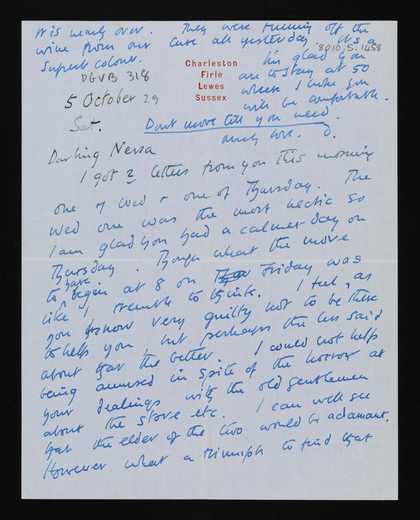 It is nearly over. They were running off the
wine from our cuve all yesterday. It's a
superb colour.
8010.5.1458
I'm glad you
are to stay at 50
where I hope you
will be comfortable.
DGVB 318
Charleston
Firle
Lewes
Sussex
5 October 29
Sat.
Dont move till you need.
much love. D.
Darling Nessa
I got 2 letters from you this morning
one of Wed & one of Thursday. The
Wed one was the most hectic so
I am glad you had a calmer day on
Thursday. Though what the move
to have begin at 8 on Friday was
like I tremble to think. I feel, as
you know very guilty not to be there
to help you, but perhaps the less said
about that the better. I could not help
being amused in spite of the horror at
your dealings with the old gentlemen
about the stove etc. I can well see
that the elder of the two would be adamant.
However what a triumph to find that